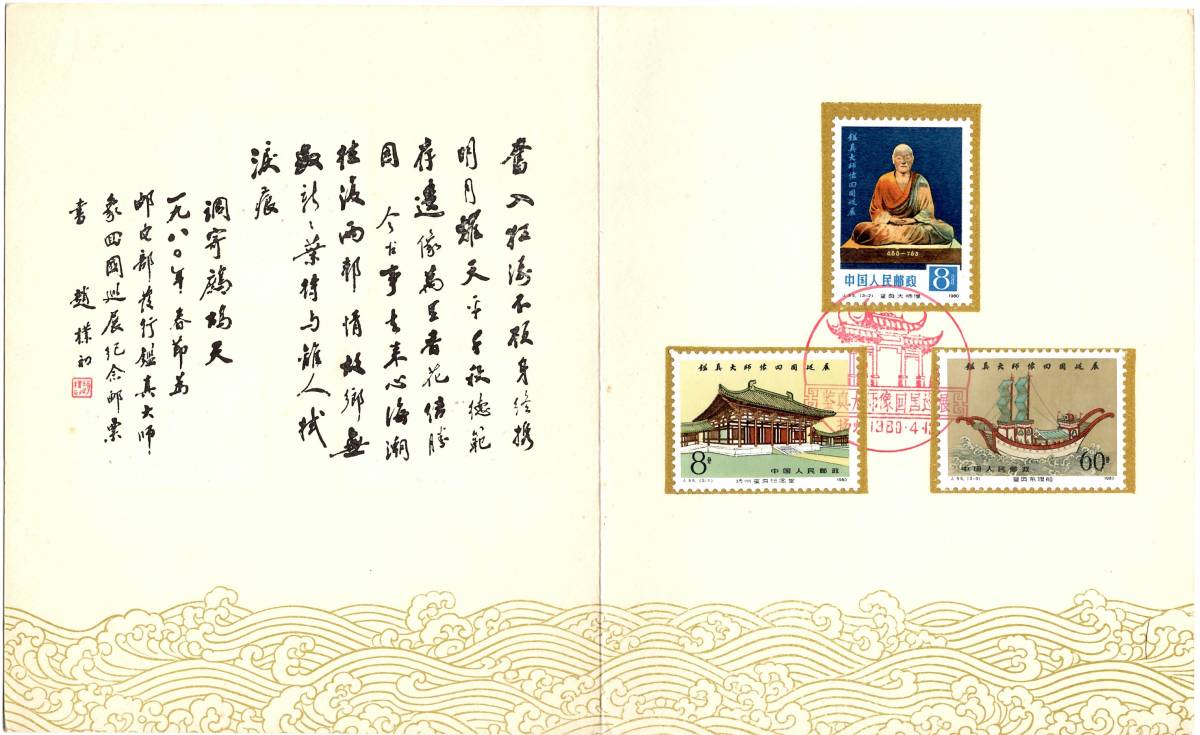 奮入狂濤不顾身終攜
明月耀天平千秋德範
存遺像萬里香花结勝
因 今古事去来心海潮
往復兩邦情故鄉無
數新〻葉待與離人拭
淚痕
調寄鹧鸪天
一九八〇年春節为
邮电部發行鑑真大师
象回國巡展紀念邮票
書 趙樸初
鑑真大师像回国巡展
688-763
中国人民邮政 8分
J.55.(3-2) 鉴真大师像 1980
鑑真大师像回国巡展
8分 中国人民邮政
J.55.(3-1) 扬州鉴真纪念堂 1980
鑑真大师像回国巡展
中国人民邮政 60分
J.55.(3-3) 鉴真东渡船 1980
鉴真大师像回国巡展
扬州 1980·4·